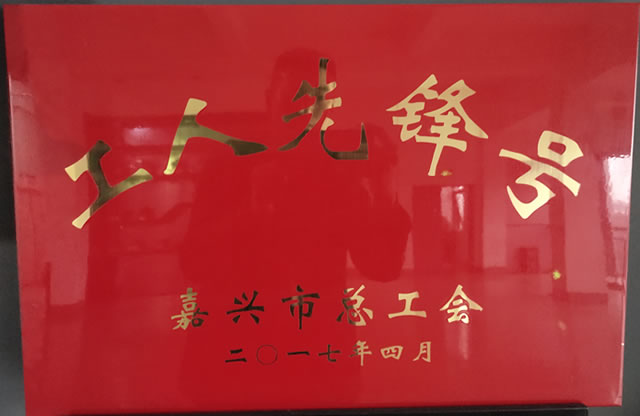 工人先锋号
嘉兴市总工会
二〇一七年四月